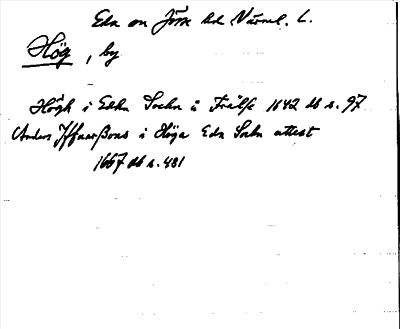 Eda sn Jösse hd Värml. L.
Hög, by
Högh i Edha Sochn å Frälse 1642 db s. 97
Anders i Höga Eda Sochn attest
1667 db s. 481